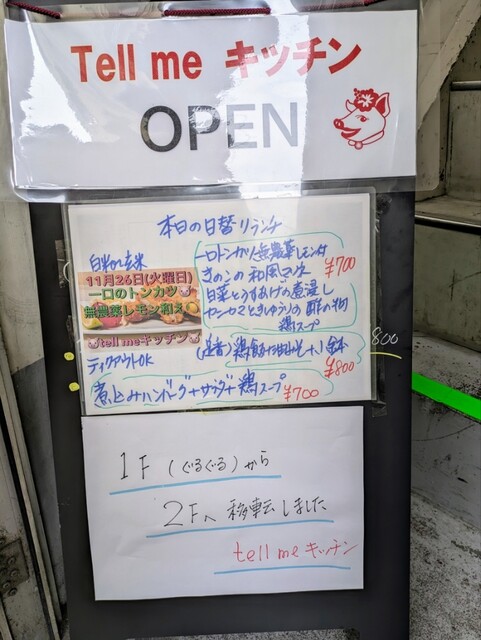 Tell me キッチン
OPEN
本日の日替りランチ
白米or玄米
11月26日(火曜日)
一口のトンカツ
無農薬レモン和え
tell meキッチン
ティクアウトOK
一口トンカツ無農薬レモン付
きのこの和風
白菜とうすあげの煮浸し
きゅうりの酢の物
鶏スープ
¥700
(定番)
¥800
800
煮込みハンバーグ+サラダ+鶏スープ
¥700
1F (ぐるぐる)から
2Fへ移転しました
tell me キッチン